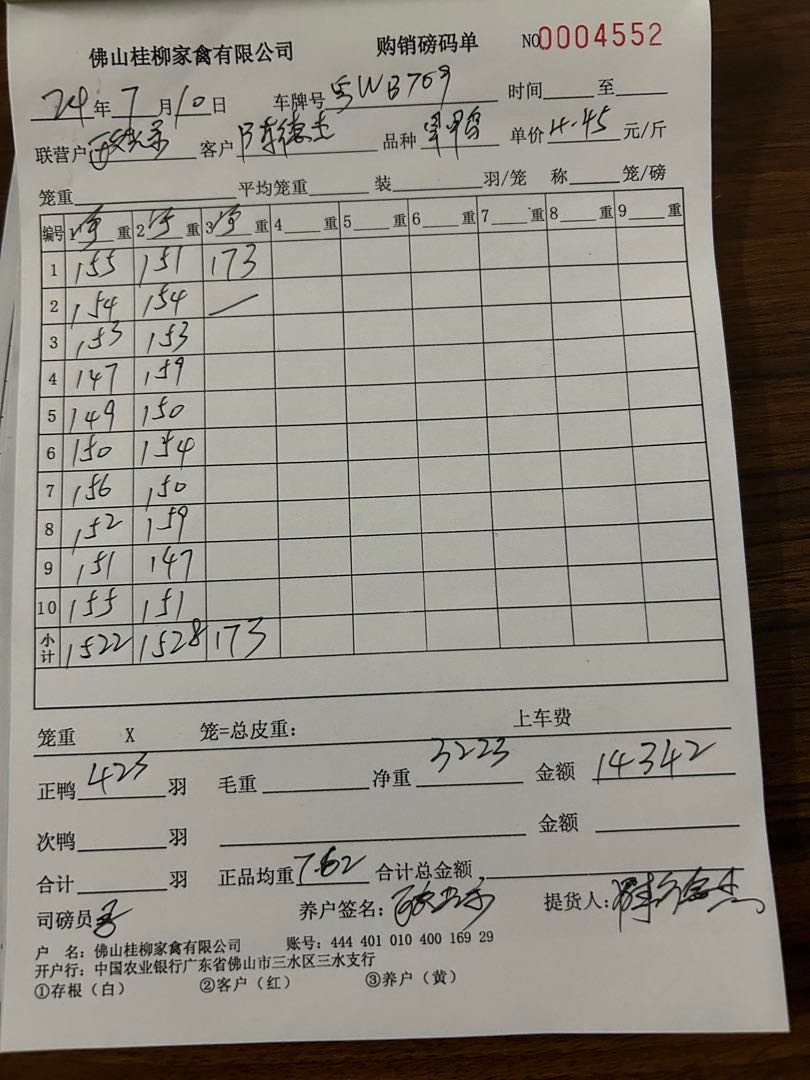 佛山桂柳家禽有限公司 购销磅码单 NO0004552
24年7月10日 车牌号粤WB769 时间 至
联营户 客户 陈德杰 品种 单价4.45元/斤
笼重 平均笼重 装 羽/笼 称 笼/磅
编号 1净重 2净重 3净重 4 重 5 重 6 重 7 重 8 重 9 重
1 155 151 173
2 154 154 —
3 153 153
4 147 159
5 149 150
6 150 154
7 156 150
8 152 159
9 151 147
10 155 151
小计 1522 1528 173
笼重 X 笼=总皮重： 上车费
正鸭423羽 毛重 净重3223 金额14342
次鸭 羽 金额
合计 羽 正品均重7.62 合计总金额
司磅员 养户签名： 提货人：陈德杰
户 名：佛山桂柳家禽有限公司 账号：444 401 010 400 169 29
开户行：中国农业银行广东省佛山市三水区三水支行
①存根（白） ②客户（红） ③养户（黄）